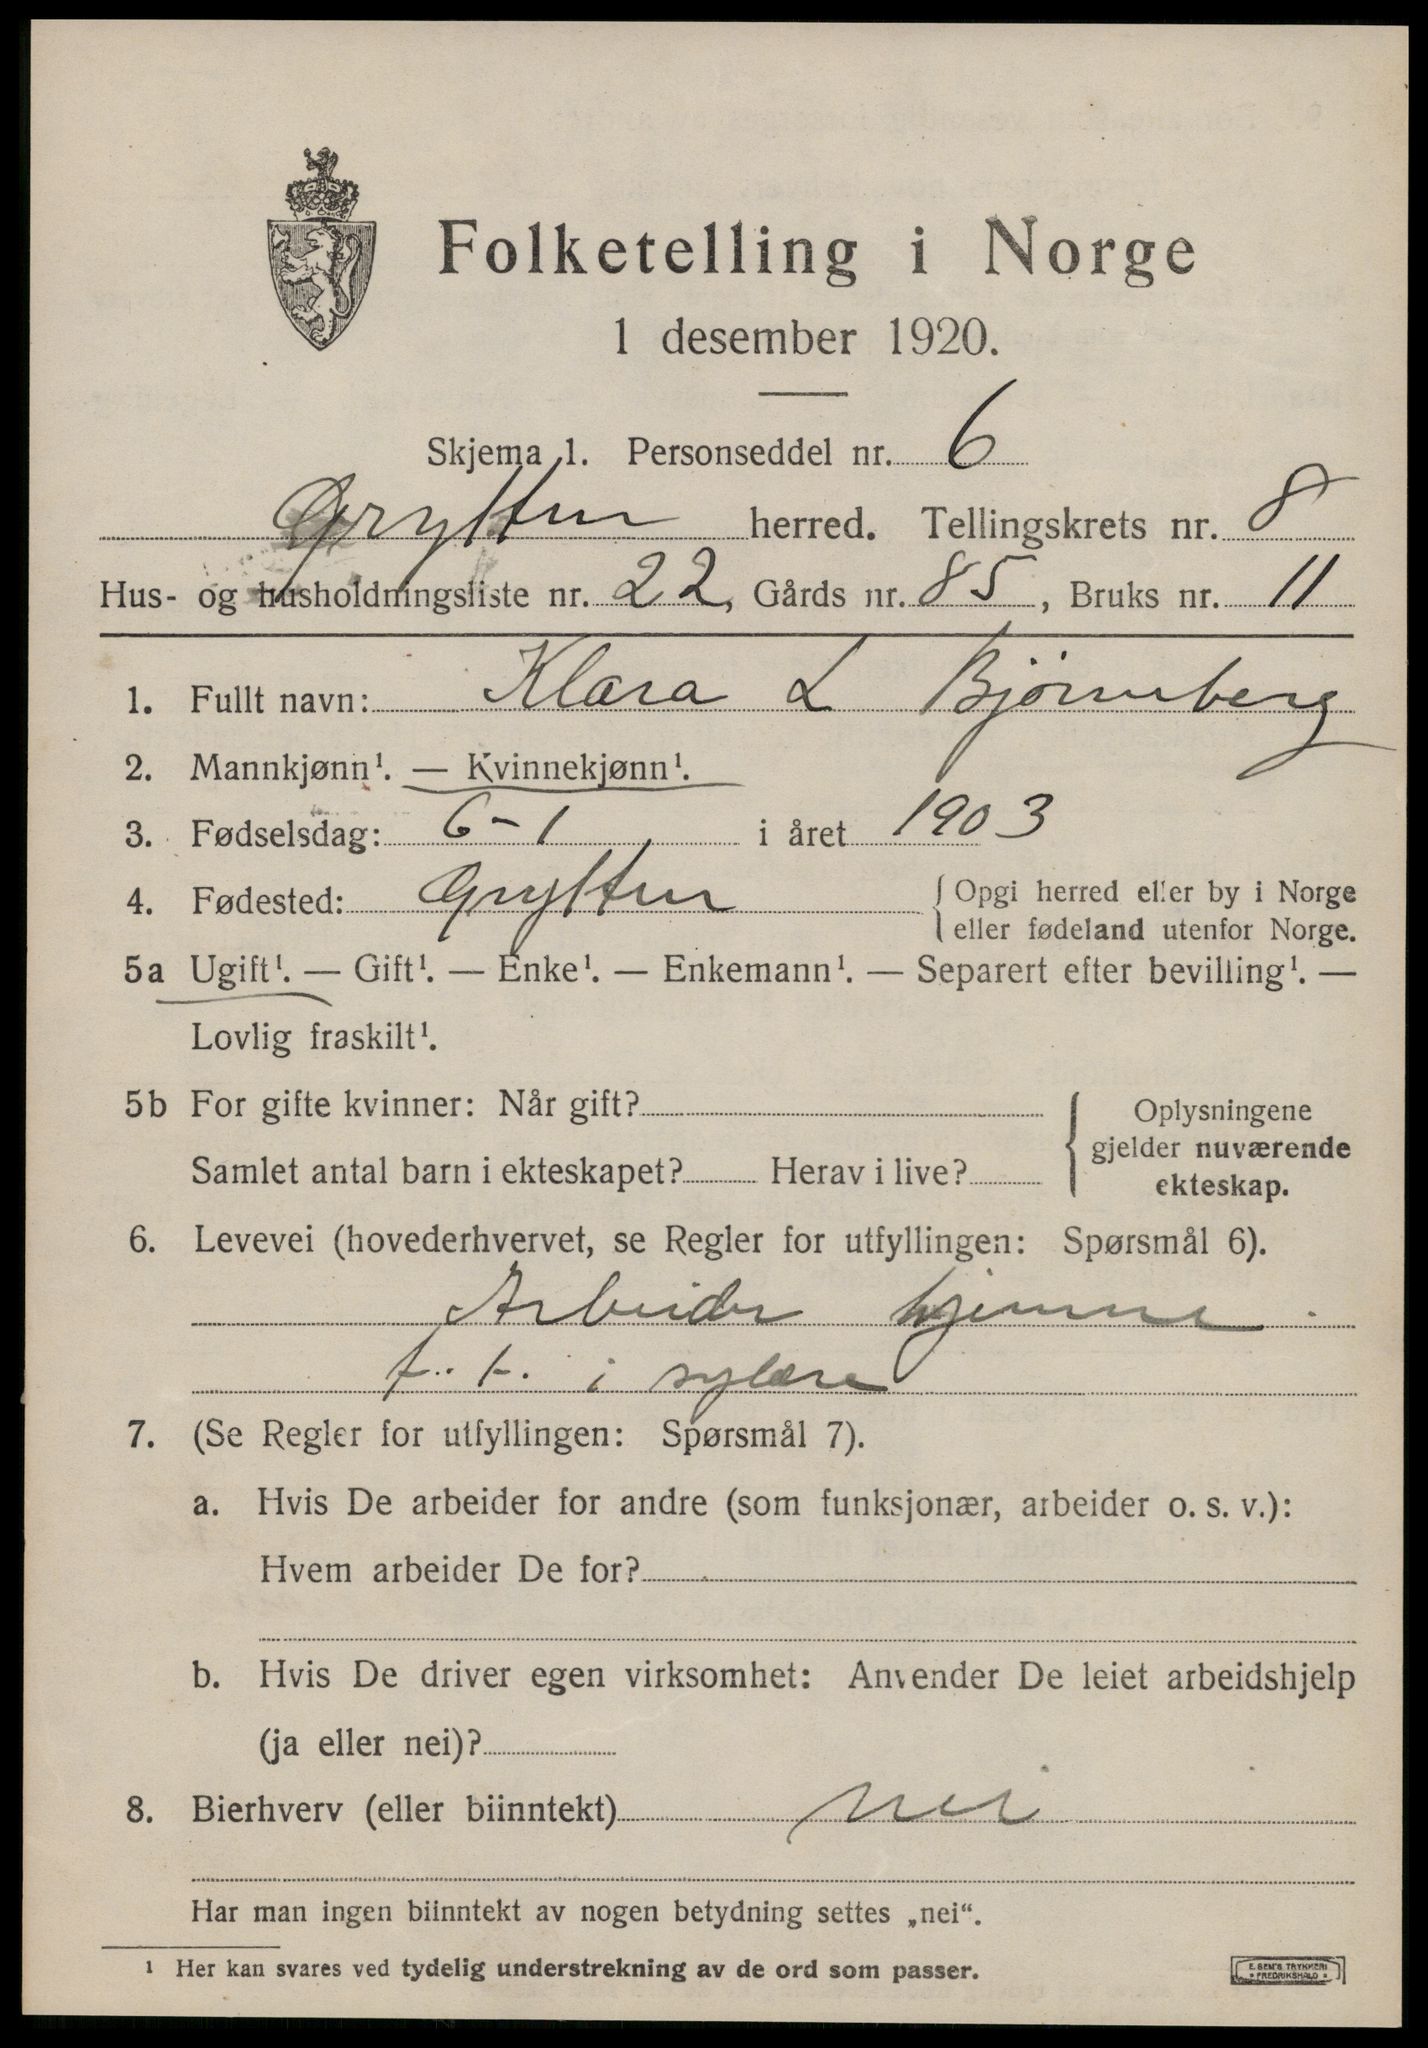 Folketelling i Norge
1 desember 1920.
Skjema 1. Personseddel nr. 6
Grytten herred. Tellingskrets nr. 8
Hus- og husholdningsliste nr. 22, Gårds nr. 85, Bruks nr. 11
1. Fullt navn: Klara L Bjørneberg
2. Mannkjønn¹. — Kvinnekjønn¹.
3. Fødselsdag: 6-1 i året 1903
4. Fødested: Grytten { Opgi herred eller by i Norge
eller fødeland utenfor Norge.
5a Ugift¹. — Gift¹. — Enke¹. — Enkemann¹. — Separert efter bevilling¹. —
Lovlig fraskilt¹.
5b For gifte kvinner: Når gift?
Samlet antal barn i ekteskapet? Herav i live?
{ Oplysningene
gjelder nuværende
ekteskap.
6. Levevei (hovederhvervet, se Regler for utfyllingen: Spørsmål 6).
Arbeider hjemme
f. t. i sylære
7. (Se Regler for utfyllingen: Spørsmål 7).
a. Hvis De arbeider for andre (som funksjonær, arbeider o. s. v.):
Hvem arbeider De for?
b. Hvis De driver egen virksomhet: Anvender De leiet arbeidshjelp
(ja eller nei)?
8. Bierhverv (eller biinntekt) nei
Har man ingen biinntekt av nogen betydning settes „nei“.
¹ Her kan svares ved tydelig understrekning av de ord som passer.
E. SEM'S TRYKKERI
* FREDRIKSHALD *